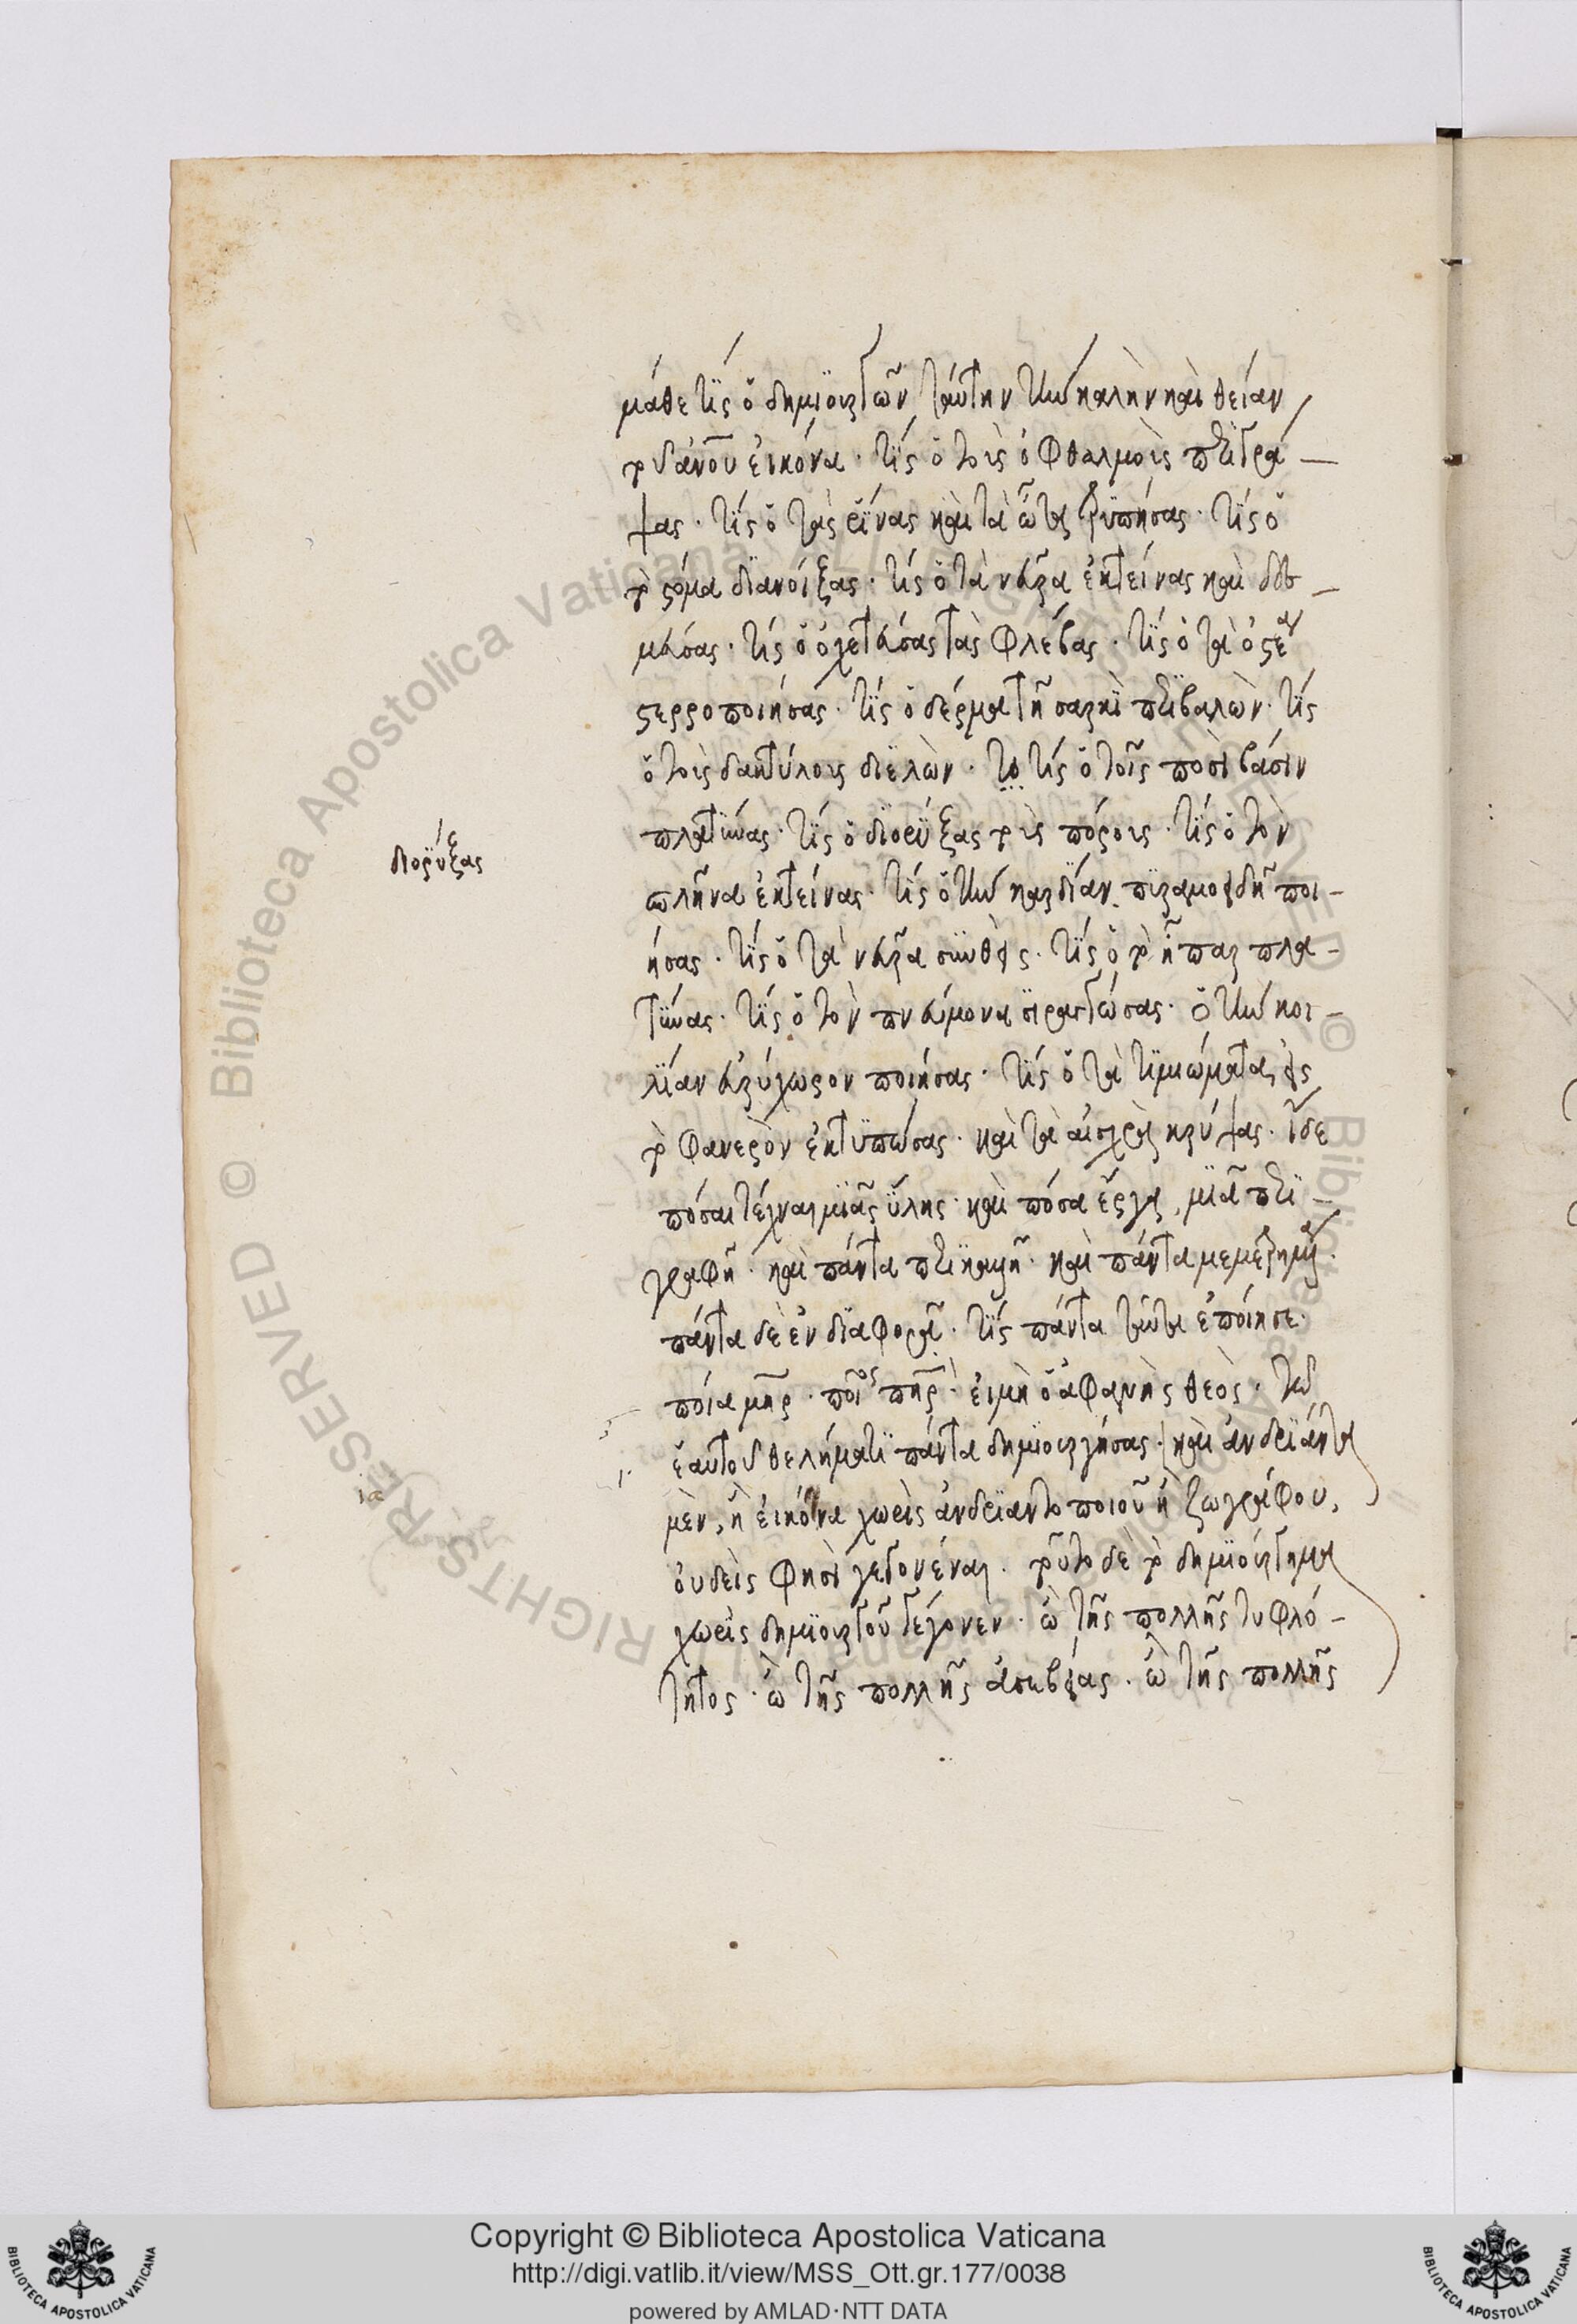 μάθε τίς ὁ δημιουργῶν ταύτην τὴν καλὴν καὶ θείαν
τοῦ ἀνου εἰκόνα· τίς ὁ τοὶς ὀφθαλμοὶς περιγρά–
ψας· τίς ὁ τὰς ρῖνας καὶ τὰ ὦτα τρυπήσας· τίς ὁ
τὸ στόμα διανοίξας· τίς ὁ τὰ νεῦρα ἐκτείνας καὶ δεσ–
μεύσας· τίς ὁ ὀχετεύσας τὰς φλέβας· τίς ὁ τὰ ὀστέα
στερροποιήσας· τίς ὁ δέρματι τῆ σαρκὶ περιβαλὼν· τίς
ὁ τοὶς δακτύλοις διελὼν· το τίς ὁ τοῖς ποσὶ βάσιν
πλατύνας· τίς ὁ διορύξας τοὶς πόροις· τίς ὁ τὸν
διορύξας
σπλῆνα ἐκτείνας· τίς ὁ τὴν καρδίαν πυραμοειδῆ ποι–
ήσας· τίς ὁ τὰ νεῦρα συνθεὶς· τίς ὁ τὸ ἧπαρ πλα–
τύνας· τίς ὁ τὸν πνεύμονα σιραγγώσας· ὁ τὴν κοι–
λίαν εὐρύχωρον ποιήσας· τίς ὁ τὰ τιμιώματα εἰς
τὸ φανερὸν ἐκτυπώσας· καὶ τὰ αἰσχρὰ κρύψας· ἴδε
πόσαι τέχναι μιᾶς ὕλης· καὶ πόσα ἔργα, μιᾶ περι–
γραφῆ· καὶ πάντα περικαλῆ· καὶ πάντα μεμετρημένα·
πάντα δὲ ἐν διαφορᾶ· τίς πάντα ταῦτα ἐποίησε·
ποία μῆρ· ποῖος πῆρ· εἰμὴ ὁ ἀφανὴς θεὸς· τῶ
ἑαυτοῦ θελήματι πάντα δημιουργήσας· καὶ ἀνδριάντα
μὲν, ἢ εἰκόνα χωρὶς ἀνδριαντοποιοῦ ἢ ζωγράφου,
ια
οὐδεὶς φησὶ γεγονέναι· τοῦτο δὲ τὸ δημιούργημα
χωρὶς δημιουργοῦ γέγονεν· ὢ τῆς πολλῆς τυφλό–
τητος· ὢ τῆς πολλῆς ἀσεβείας· ὢ τῆς πολλῆς
Copyright © Biblioteca Apostolica Vaticana
http://digi.vatlib.it/view/MSS_Ott.gr.177/0038
powered by AMLAD·NTT DATA